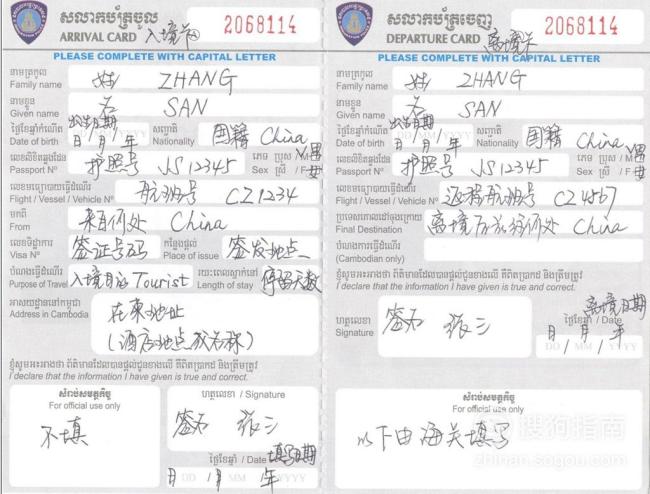 សលាកប័ត្រចូល
ARRIVAL CARD 入境卡
2068114
PLEASE COMPLETE WITH CAPITAL LETTER
នាមត្រកូល
Family name 姓 ZHANG
នាមខ្លួន
Given name 名 SAN
ថ្ងៃខែឆ្នាំកំណើត 出生日期 សញ្ជាតិ
Date of birth 日 月 年 Nationality 国籍 China
លេខលិខិតឆ្លងដែន ភេទ ប្រុស / M 男
Passport Nº 护照号 JS12345 Sex ស្រី / F 女
លេខមធ្យោបាយធ្វើដំណើរ
Flight / Vessel / Vehicle Nº 航班号 CZ1234
មកពី
From 来自何处 China
លេខទិដ្ឋាការ កន្លែងផ្តល់
Visa Nº 签证号码 Place of issue 签发地点
បំណងធ្វើដំណើរ រយៈពេលស្នាក់នៅ
Purpose of Travel 入境目的 Tourist Length of stay 停留天数
អាសយដ្ឋាននៅកម្ពុជា
Address in Cambodia 在柬地址
(酒店地点或名称)
ខ្ញុំសូមអះអាងថា ព័ត៌មានដែលបានផ្តល់ជូនខាងលើ គឺពិតប្រាកដ និងត្រឹមត្រូវ
I declare that the information I have given is true and correct.
សំរាប់សមត្ថកិច្ច
For official use only
不填
ហត្ថលេខា / Signature
签名 张三
ថ្ងៃខែឆ្នាំ / Date 填写日期
日 / 月 / 年
សលាកប័ត្រចេញ
DEPARTURE CARD 离境卡
2068114
PLEASE COMPLETE WITH CAPITAL LETTER
នាមត្រកូល
Family name 姓 ZHANG
នាមខ្លួន
Given name 名 SAN
ថ្ងៃខែឆ្នាំកំណើត 出生日期 សញ្ជាតិ
Date of birth 日 月 年 Nationality 国籍 China
លេខលិខិតឆ្លងដែន ភេទ ប្រុស / M 男
Passport Nº 护照号 JS12345 Sex ស្រី / F 女
លេខមធ្យោបាយធ្វើដំណើរ
Flight / Vessel / Vehicle Nº 返程航班号 CZ4567
ប្រទេសគោលដៅចុងក្រោយ
Final Destination 离境后前往何处 China
បំណងការធ្វើដំណើរ
(Cambodian only)
ខ្ញុំសូមអះអាងថា ព័ត៌មានដែលបានផ្តល់ជូនខាងលើ គឺពិតប្រាកដ និងត្រឹមត្រូវ
I declare that the information I have given is true and correct.
离境日期
ហត្ថលេខា ថ្ងៃខែឆ្នាំ / Date
Signature 签名 张三 日 / 月 / 年
DD MM YYYY
សំរាប់សមត្ថកិច្ច
For official use only
以下由海关填写
搜狗指南
zhinan.sogou.com